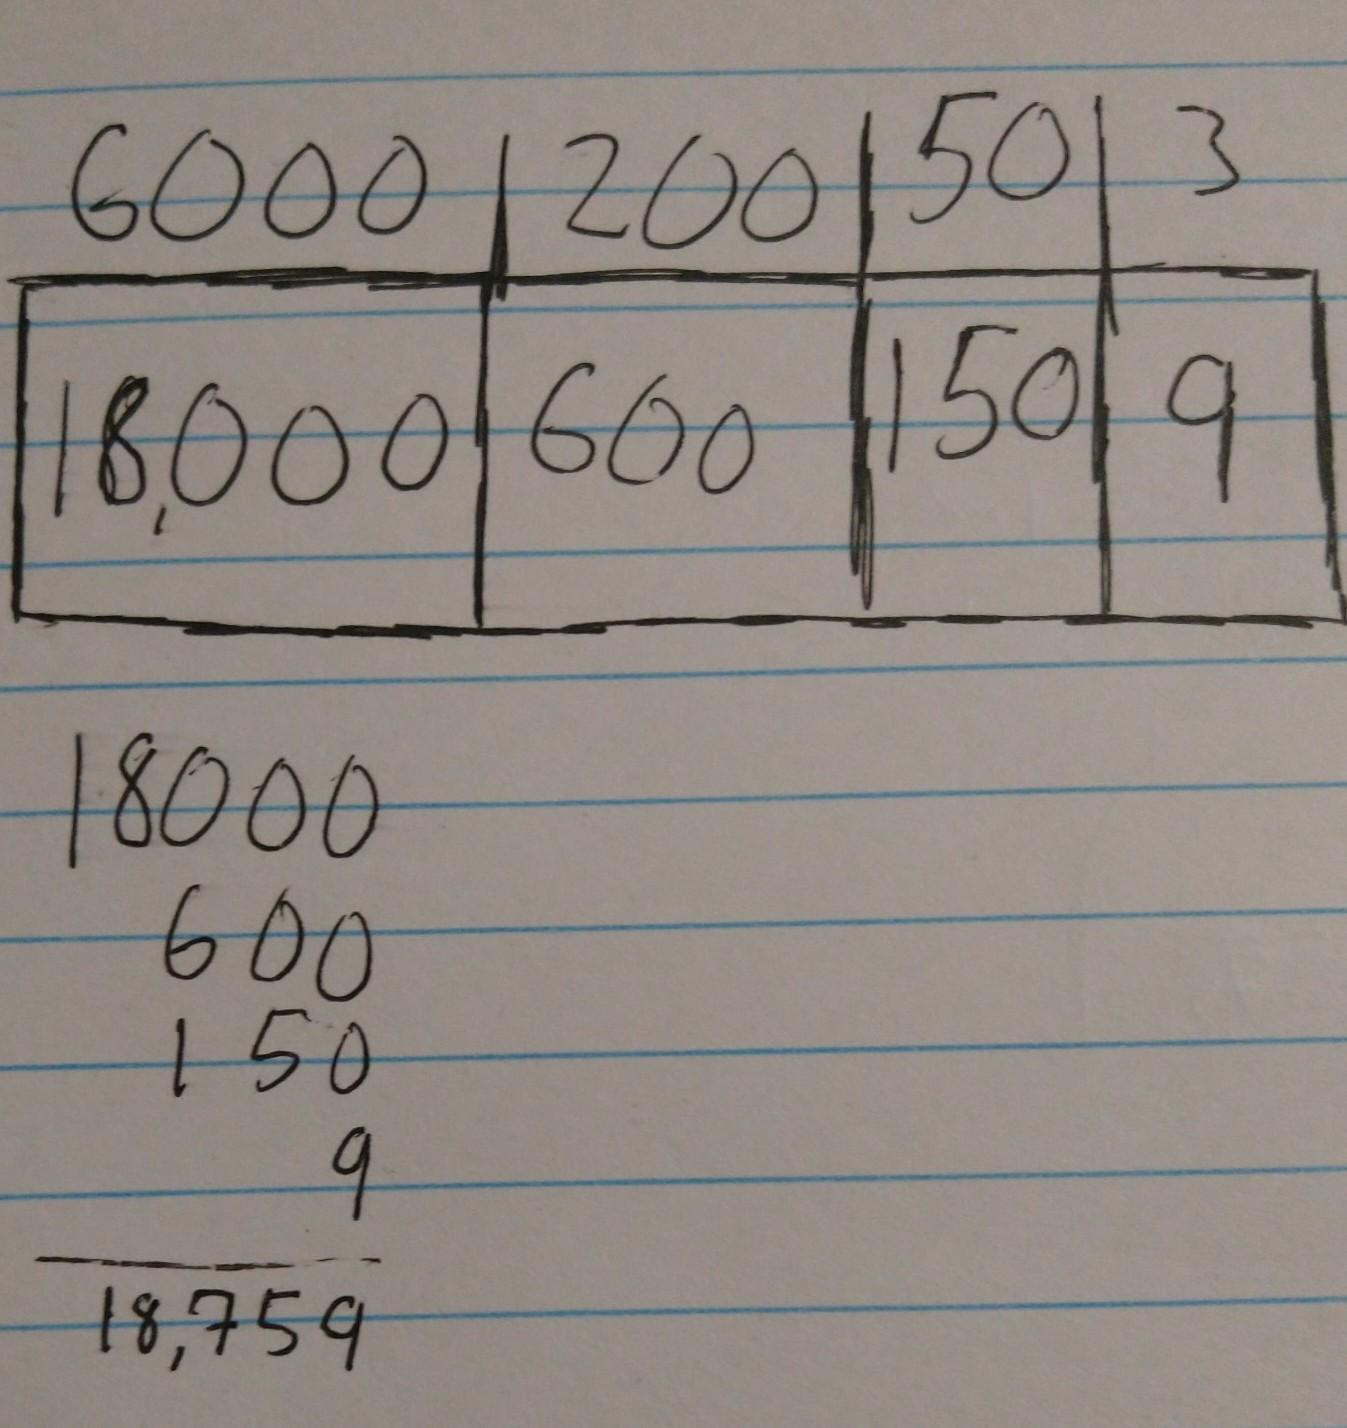 6000 200 50 3
18,000 600 150 9
18000
600
150
9
18,759